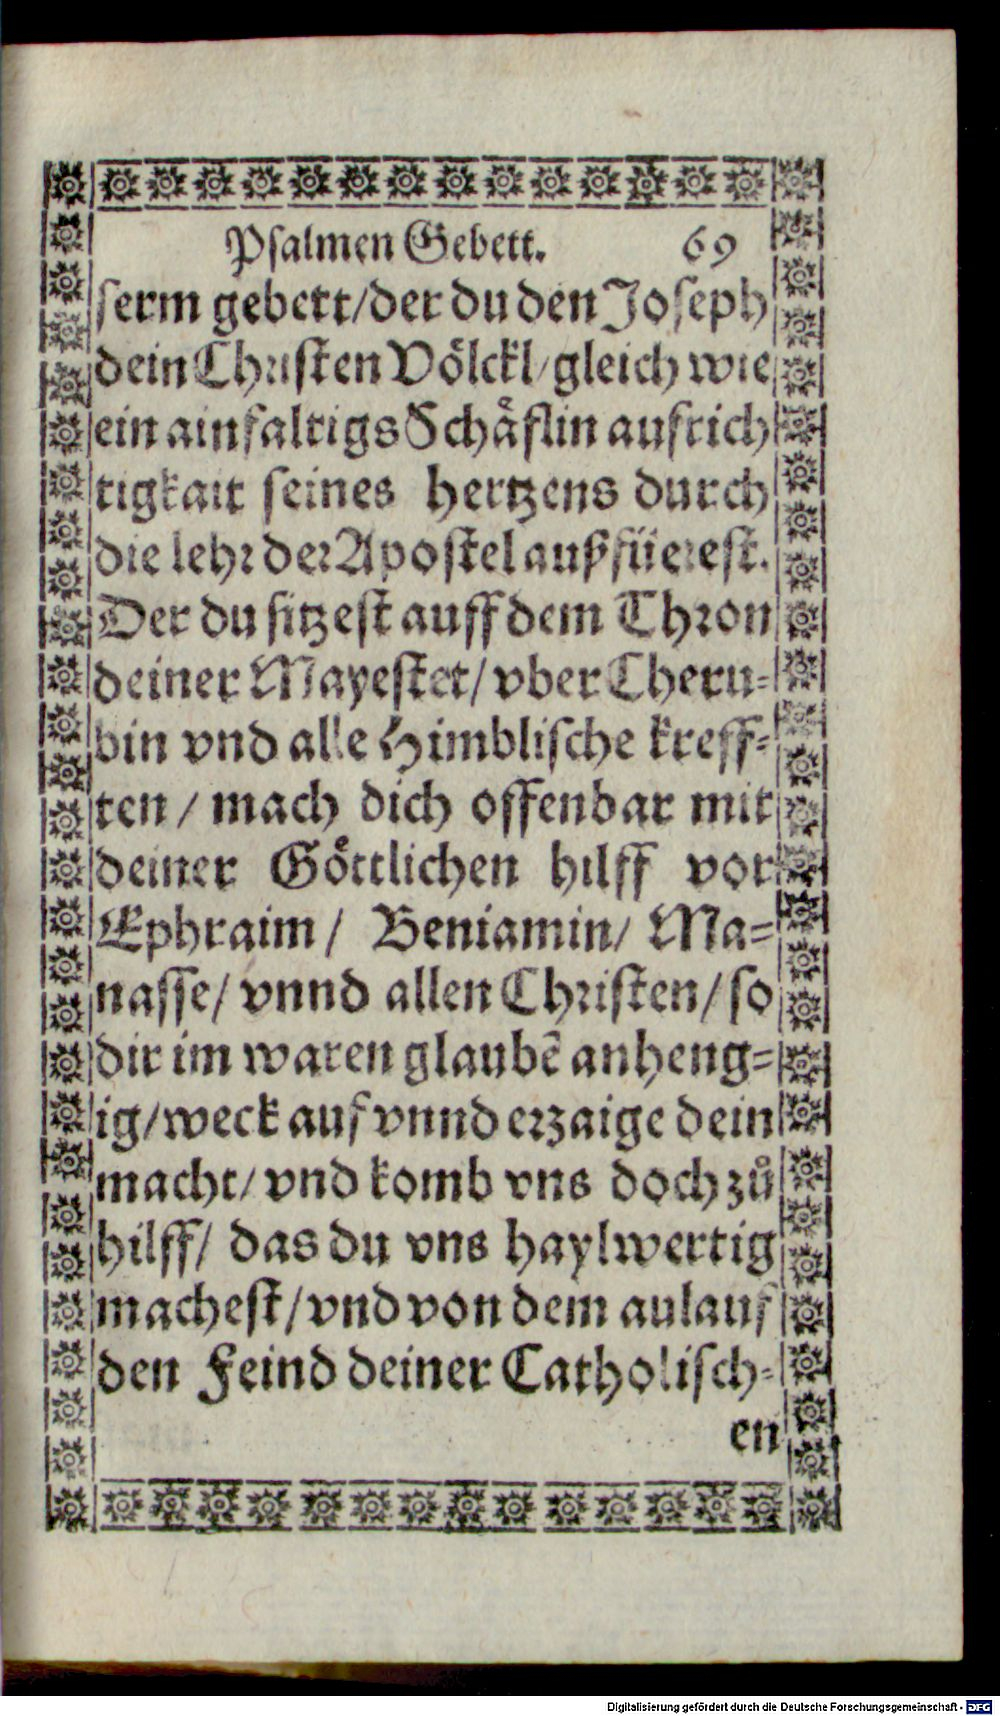 Psalmen Gebett. 69
serm gebett/der du den Joseph
dein Christen Völckl/gleich wie
ein ainfaltigs Schåflin aufrich
tigkait seines hertzens durch
die lehr der Apostel außfüerest.
Der du sitzest auff dem Thron
deiner Mayestet/ vber Cheru-
bin vnd alle Himblische kreff-
ten/ mach dich offenbar mit
deiner Göttlichen hilff vor
Ephraim/ Beniamin/ Ma-
nasse/ vnnd allen Christen/ so
dir im waren glaubẽ anheng-
ig/weck auf vnnd erzaige dein
macht/ vnd komb vns doch zů
hilff/ das du vns haylwertig
machest/vnd von dem aulauf
den Feind deiner Catholisch-
en
Digitalisierung gefördert durch die Deutsche Forschungsgemeinschaft - DFG